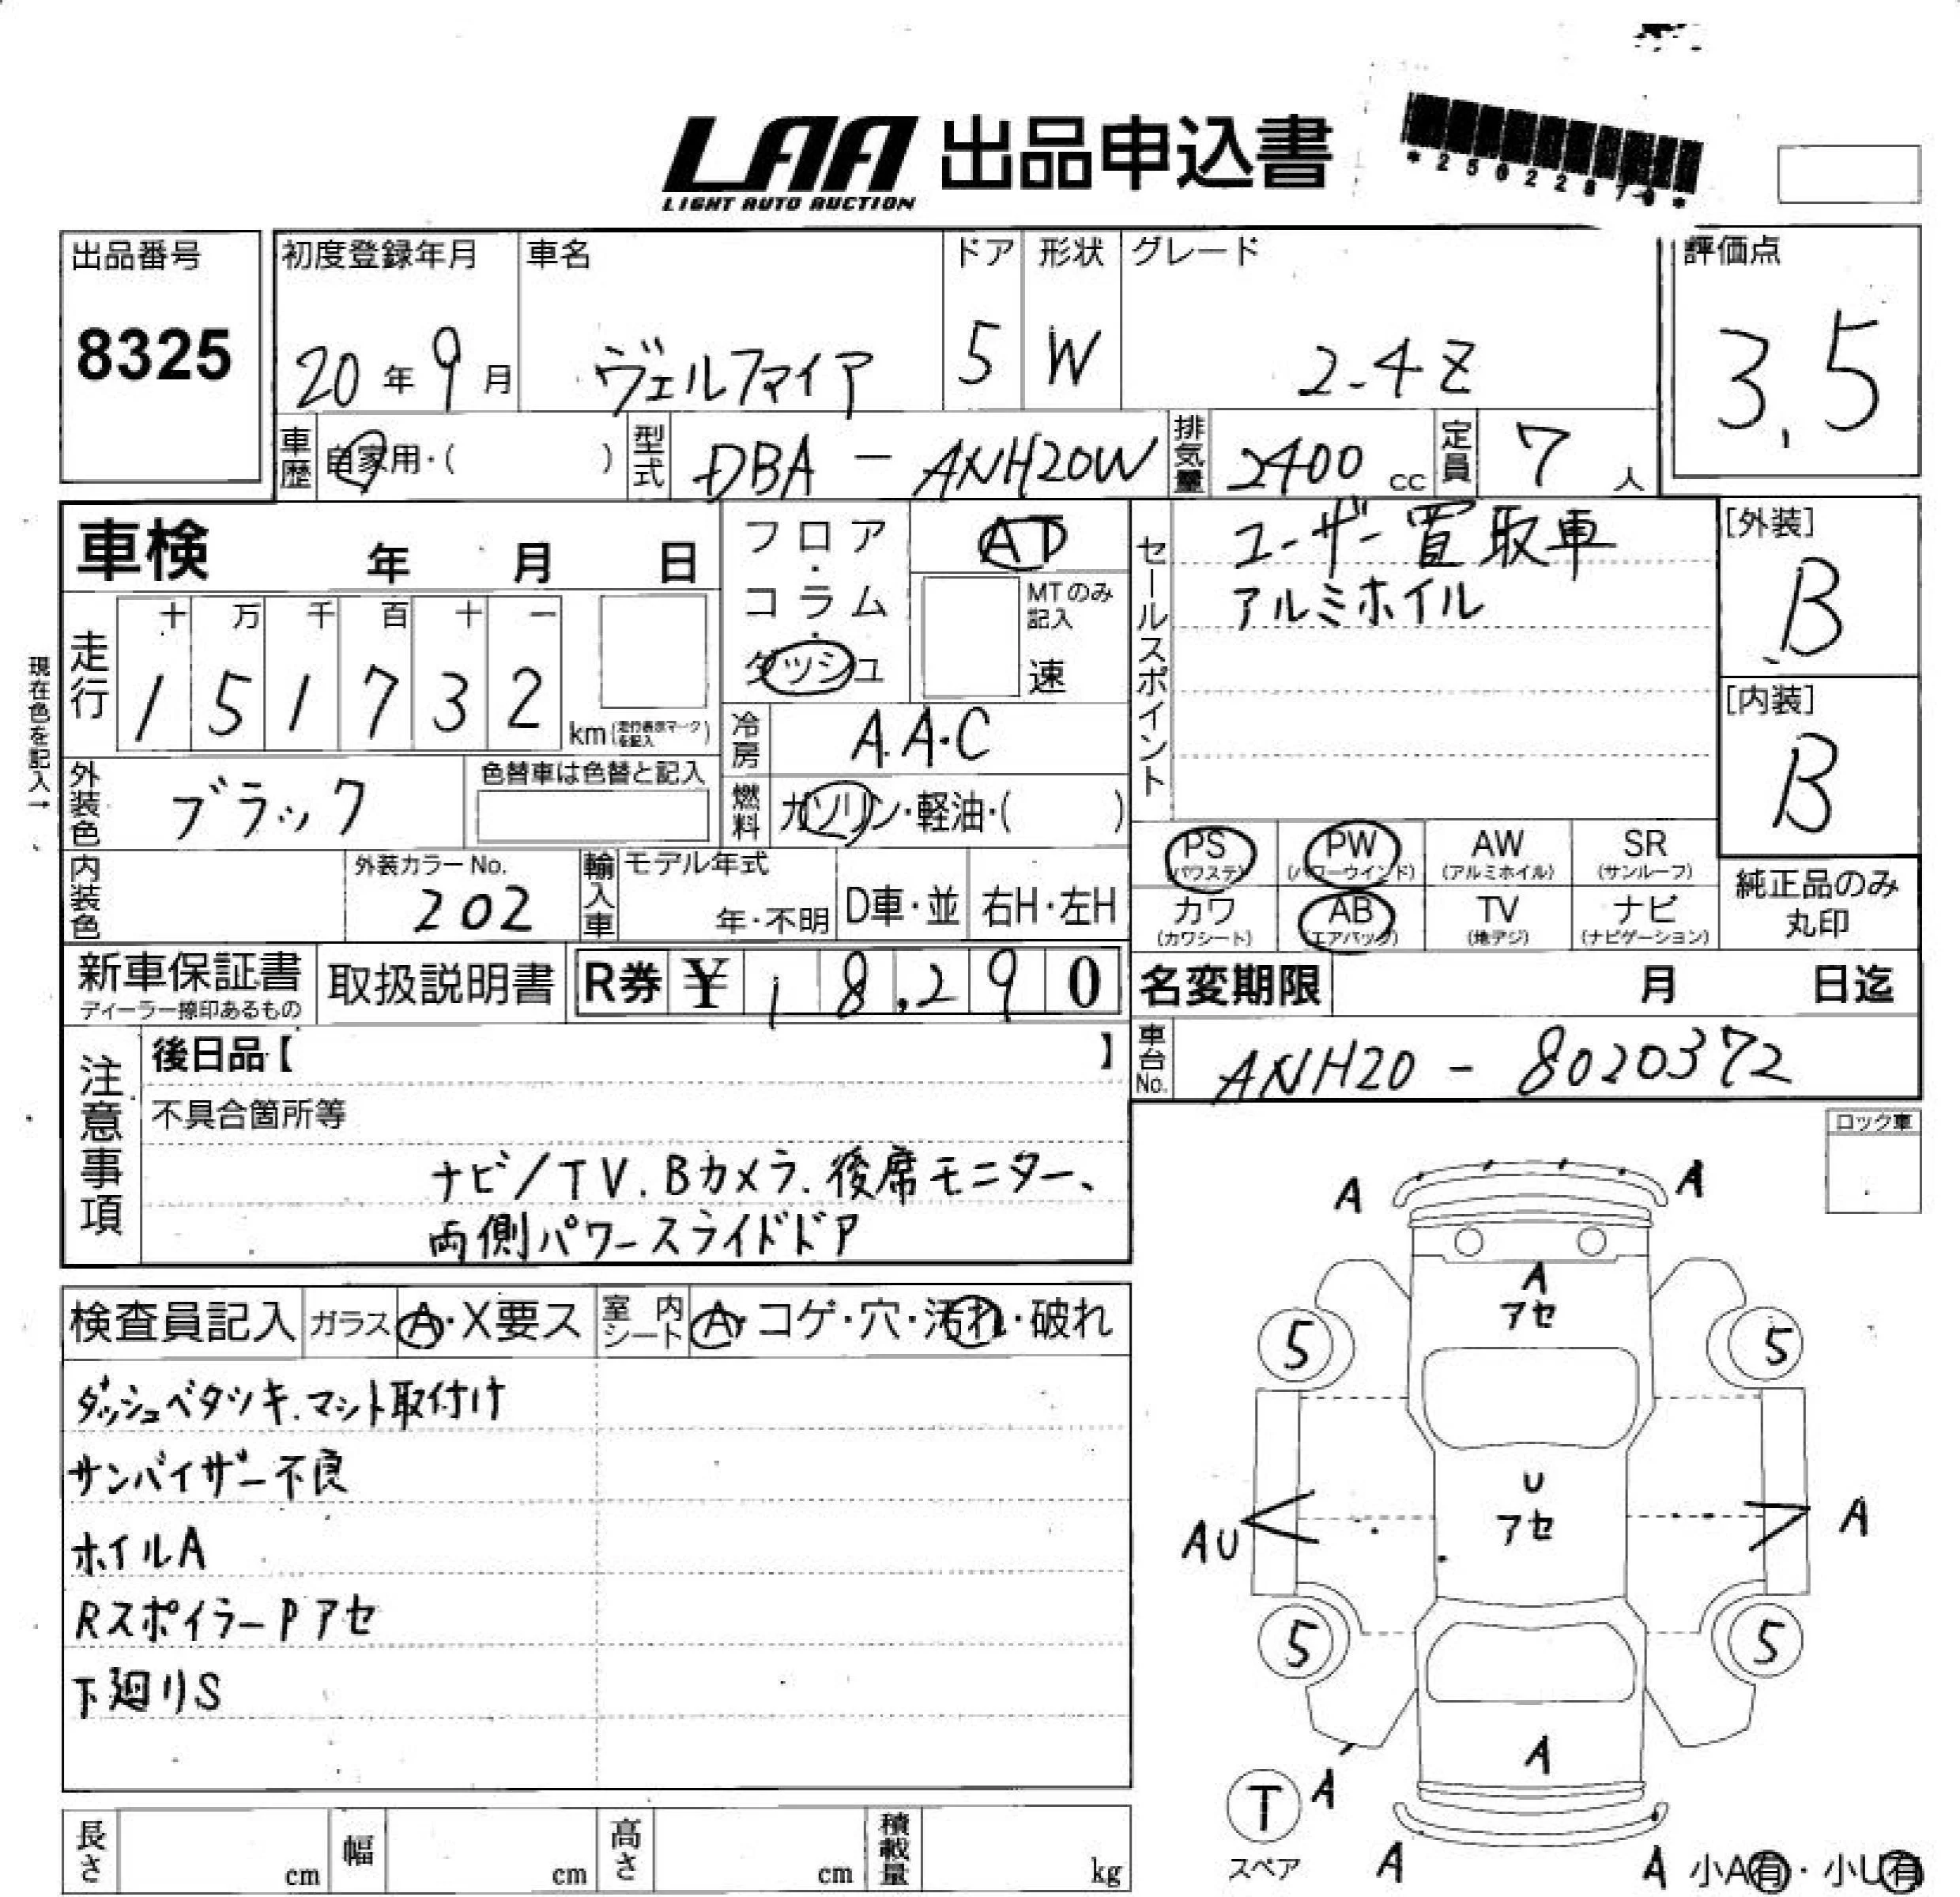 LAA 出品申込書
LIGHT AUTO AUCTION
*25022870*
出品番号 初度登録年月 車名 ドア 形状 グレード 評価点
8325 20年 9月 ヴェルファイア 5 W 2.4Z 3.5
車歴 自家用・( ) 型式 DBA - ANH20W 排気量 2400 cc 定員 7 人
車検 年 月 日
フロア・コラム・ダッシュ
AT
MTのみ記入
速
セールスポイント
ユーザー買取車
アルミホイル
[外装]
B
[内装]
B
現在色を記入→
走行
十 万 千 百 十 一
1 5 1 7 3 2
km (走行表示マークを記入)
冷房 A.A.C
外装色 ブラック
色替車は色替と記入
燃料 ガソリン・軽油・( )
内装色
外装カラーNo.
202
輸入車 モデル年式
年・不明 D車・並 右H・左H
PS (パワステ) PW (パワーウインド) AW (アルミホイル) SR (サンルーフ)
カワ (カワシート) AB (エアバッグ) TV (地デジ) ナビ (ナビゲーション)
純正品のみ丸印
新車保証書
ディーラー捺印あるもの
取扱説明書
R券 ¥ 18,290
名変期限 月 日迄
車台No. ANH20 - 8020372
注意事項
後日品【 】
不具合箇所等
ナビ/TV.Bカメラ.後席モニター、
両側パワースライドドア
ロック車
検査員記入 ガラス A・X要ス 室内シート A・コゲ・穴・汚れ・破れ
ダッシュベタツキ.マット取付け
サンバイザー不良
ホイルA
RスポイラーPアセ
下廻りS
A A
A
アセ
5 5
U
アセ
AU A
5 5
A
T A
スペア
A A
小A有・小U有
長さ cm 幅 cm 高さ cm 積載量 kg